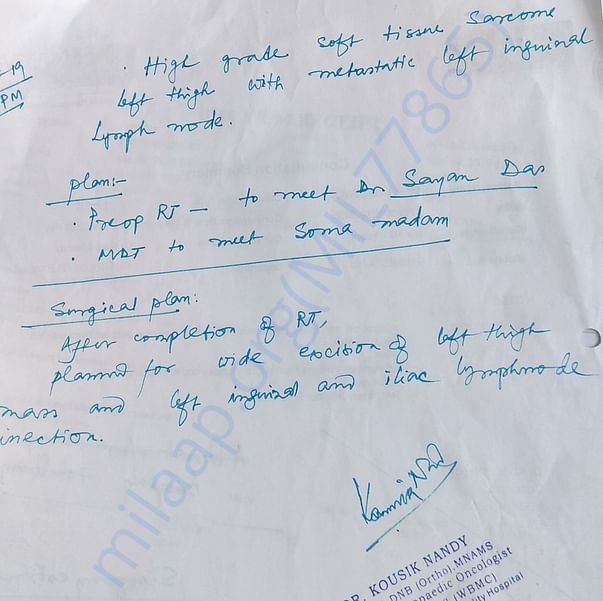 -19
PM
· High grade soft tissue Sarcome
left thigh with metastatic left inguinal
Lymph node.
plan:-
· Preop RT - to meet Dr Sayan Das
· MDT to meet Soma madam
Surgical plan:
After completion of RT,
planned for wide excision of left thigh
mass and left inguinal and iliac lymphnode
inection.
R. KOUSIK NANDY
DNB (Ortho), MNAMS
paedic Oncologist
(WBMC)
lity Hospital
milaap.org(MIL778655)